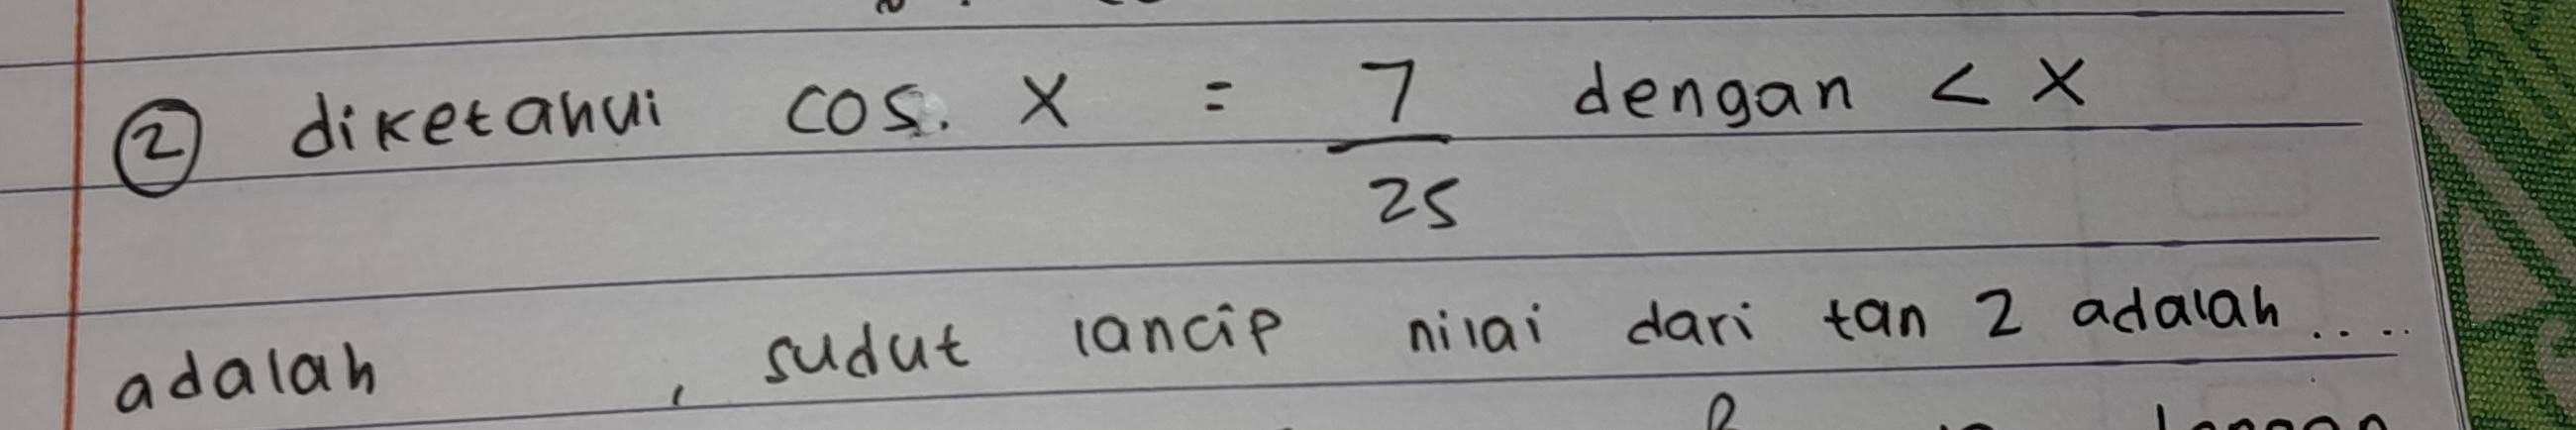 ② diketahui cos. X = 7/25 dengan < X
adalah , sudut lancip nilai dari tan 2 adalah ....